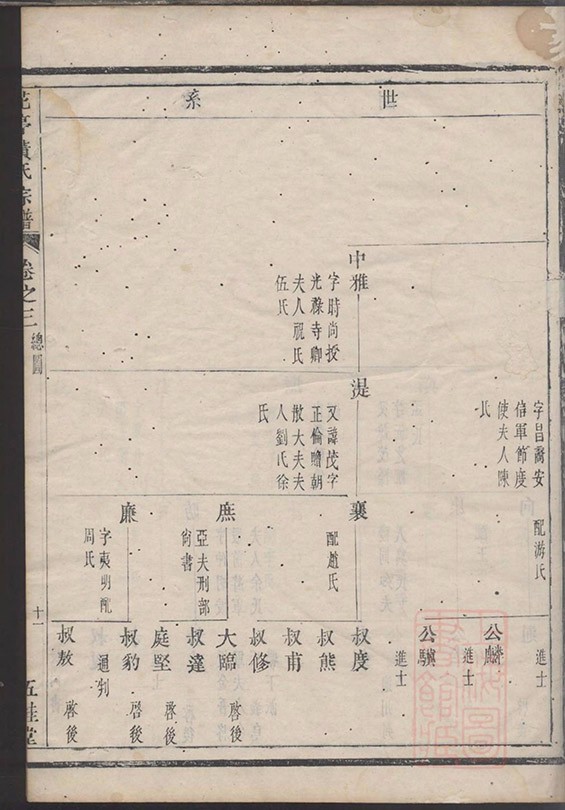 世系
字昌裔安
信軍節度
使夫人陳
氏
配游氏
進士
公麟
進士
公驥
進士
中雅
字時尚授
光祿寺卿
夫人祝氏
伍氏
湜
又諱茂字
正倫贈朝
散大夫夫
人劉氏徐
氏
襄
配趙氏
叔度
叔熊
叔甫
叔修
庶
亞夫刑部
尚書
大臨
啓後
叔達
廉
字夷明配
周氏
庭堅
啓後
叔豹
通判
啓後
叔敖
啓後
黃氏宗譜
卷之三
總圖
十一
五桂堂